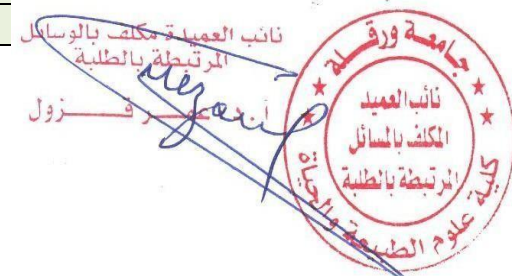 نائب العميدة مكلف بالوسائل
المرتبطة بالطلبة
قـــزول
جامعة ورقلة
نائب العميد
المكلف بالمسائل
المرتبطة بالطلبة
كلية علوم الطبيعة والحياة